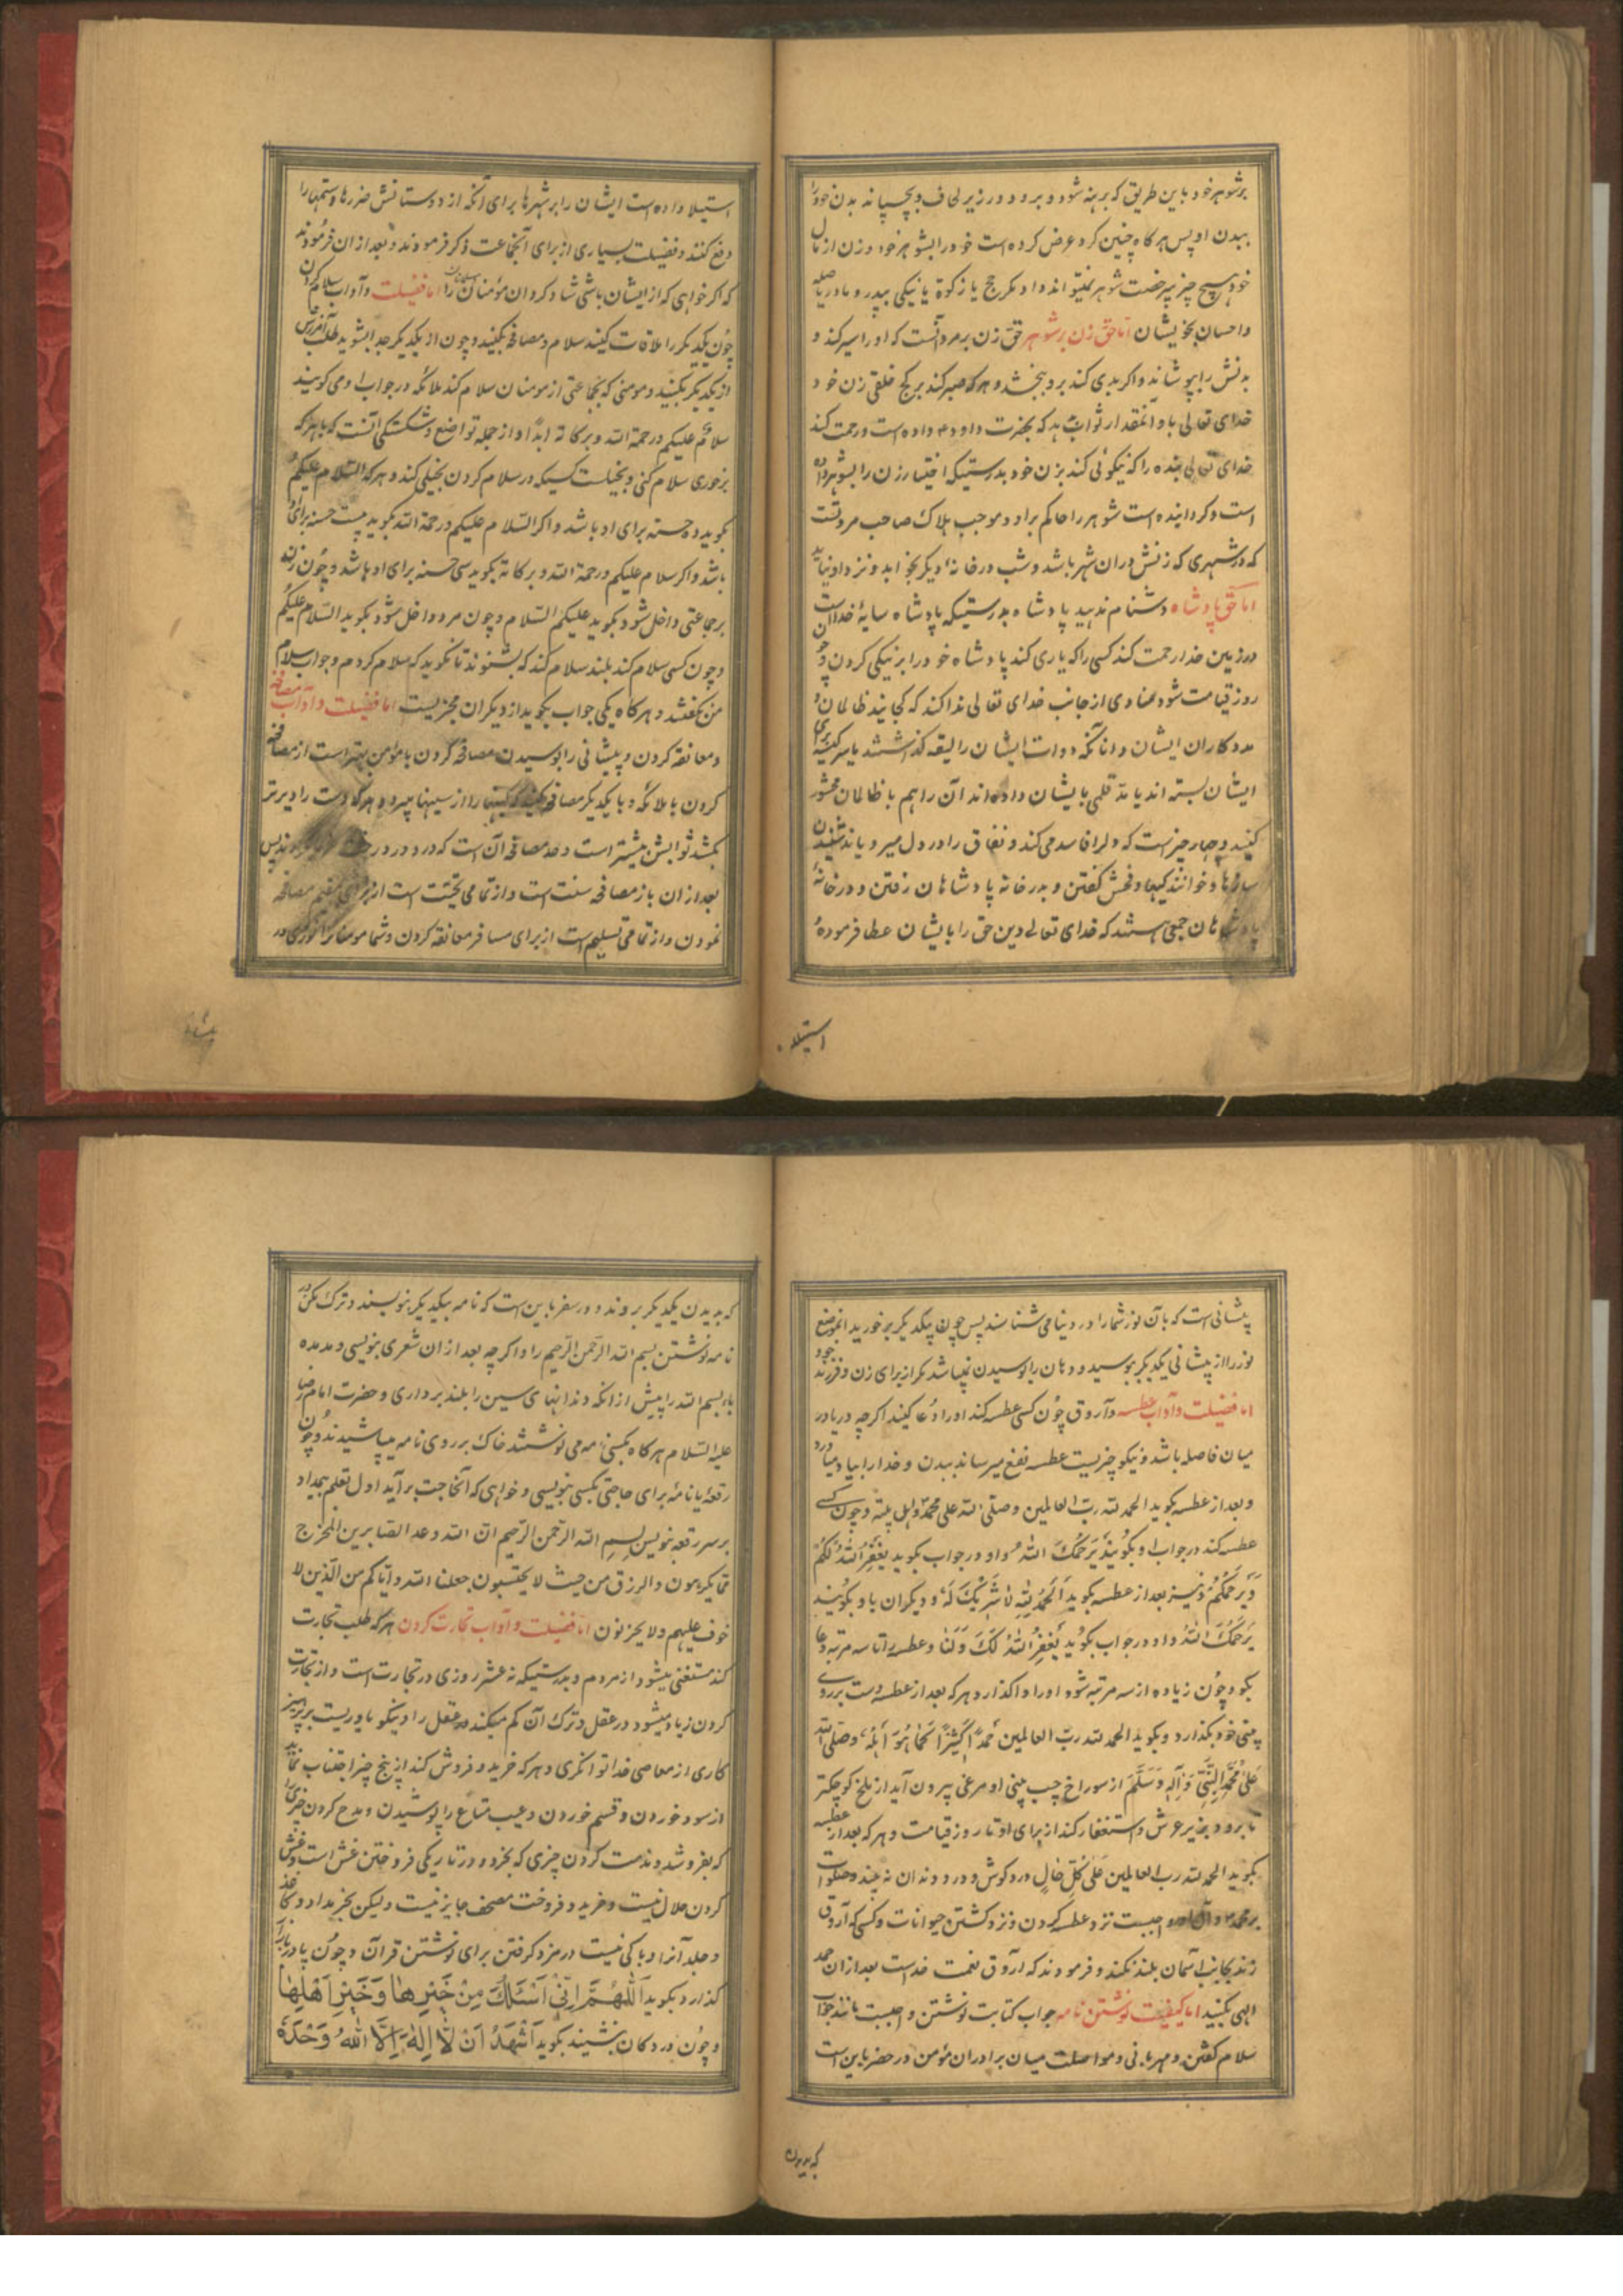 بر شوهر خود باین طریق که برهنه شود و برود در زیر لحاف و بچسپاند بدن خود را
ببدن او پس هر کاه چنین کرد عرض کرده است خود را بشوهر خود و زن از مال
خود هیچ چیز بیرخصت شوهر نمیتواند داد مکر حج یا زکوة یا نیکی بپدر و مادر یا صله
و احسان بخویشان اما حق زن بر شوهر حق زن بر مرد آنست که او را سیر کند و
بدنش را بپوشاند و اکر بدی کند برو ببخشد و هر که صبر کند بر کج خلقی زن خود
خدای تعالی باو آنمقدار ثواب بدهد که بحضرت داود ۴ داده است و رحمت کند
خدای تعالی بنده را که نیکوئی کند بزن خود بدرستیکه اختیار زن را بشوهر داده
است و کردانیده است شوهر را حاکم بر او و موجب هلاک صاحب مروتست
که در شهری که زنش در ان شهر باشد و شب در خانهٔ دیکر بخوابد و نزد او نیاید
اما حق پادشاه دشنام ندهید پادشاه بدرستیکه پادشاه سایهٔ خداست
در زمین خدا رحمت کند کسی را که یاری کند پادشاه خود را بر نیکی کردن و چون
روز قیامت شود منادی از جانب خدای تعالی ندا کند که کجایند ظالمان و
مددکاران ایشان و انانکه دوات ایشان را لیقه کذاشتند یا سر کیسه برای
ایشان بسته اند یا مد قلمی بایشان داده اند آن را هم با ظالمان محشور
کنید و چهار چیز است که دلرا فاسد می کند و نفاق را در دل میرویاند شنیدن
سازها و خوانندکیها و فحش کفتن و بدر خانه پادشاهان رفتن و در خانهٔ
پادشاهان جمعی هستند که خدای تعالی دین حق را بایشان عطا فرموده
استیلا
استیلا داده است ایشان را بر شهرها برای آنکه از دوستانش ضررها و ستمها را
دفع کنند و فضیلت بسیاری از برای آنجماعت ذکر فرمودند و بعد از ان فرمودند
که اکر خواهی که از ایشان باشی شاد کردان مؤمنان را اما فضیلت و آداب سلام کردن
چون یکدیکر را ملاقات کنید سلام و مصافحه بکنید و چون از یکدیکر جدا بشوید طلب آمرزش
از یکدیکر بکنید و مومنی که بجماعتی از مومنان سلام کند ملائکه در جواب او می کویند
سلام علیکم و رحمة الله و برکاته ابدا و از جمله تواضع و شکستکی آنست که با هر که
بر خوری سلام کنی و بخیلست کسیکه در سلام کردن بخیلی کند و هر که السلام علیکم
بکوید ده حسنه برای او باشد و اکر السلام علیکم و رحمة الله بکوید بیست حسنه برای او
باشد و اکر سلام علیکم و رحمة الله و برکاته بکوید سی حسنه برای او باشد و چون زنه
بر جماعتی داخل شود بکوید علیکم السلام و چون مرد داخل شود بکوید السلام علیکم
و چون کسی سلام کند بلند سلام کند که بشنوند تا نکوید که سلام کردم و جواب سلام
من نکفتند و هر کاه یکی جواب بکوید از دیکران مجزیست اما فضیلت و آداب مصافحه
و معانقه کردن و پیشانی را بوسیدن مصافحه کردن با مؤمن بهتر است از مصافحه
کردن با ملائکه و با یکدیکر مصافحه کنید که کینها را از سینها میبرد و هر که دست را دیرتر
بکشد ثوابش بیشتر است و حد مصافحه آن است که در دور درخت
بعد از ان باز مصافحه سنت است و از تمامی تحیت است از برای مقیم مصافحه
نمودن و از تمامی تسلیم است از برای مسافر معانقه کردن و شما مومنانرا نوری در
پیشانی است که بآن نور شما را در دنیا می شناسند پس چون بیکدیکر بر خورید انموضع
نور را از پیشانی یکدیکر ببوسید و دهان را بوسیدن نمیباشد مکر از برای زن و فرزند خود
اما فضیلت و آداب عطسه و آروق چون کسی عطسه کند او را دعا کنید اکر چه دریا در
میان فاصله باشد و نیکو چیزیست عطسه نفع میرساند ببدن و خدا را بیاد میاورد
و بعد از عطسه بکوید الحمد لله رب العالمین وصلی الله علی محمد و اهل بیته و چون کسی
عطسه کند در جواب او بکویند یرحمک الله و او در جواب بکوید یغفر الله لکم
و یرحمکم و نیز بعد از عطسه بکوید الحمد لله لا شریک له و دیکران باو بکویند
یرحمک الله و او در جواب بکوید یغفر الله لک و لنا و عطسه را تا سه مرتبه دعا
بکو و چون زیاده از سه مرتبه شود او را واکذار و هر که بعد از عطسه دست بر روی
بینی خود بکذارد و بکوید الحمد لله رب العالمین حمدا کثیرا کما هو اهله وصلی الله
علی محمد النبی و آله و سلم از سوراخ چپ بینی او مرغی بیرون آید از ملخ کوچکتر
تا برود بزیر عرش و استغفار کند از برای او تا روز قیامت و هر که بعد از عطسه
بکوید الحمد لله رب العالمین علی کل حال درد کوش و درد دندان نه بیند و صلوات
بر محمد و آل او واجبست نزد عطسه کردن و نزد کشتن حیوانات و کسی که آروق
زند بجانب آسمان بلند نکند و فرمودند که اروق نعمت خداست بعد از ان حمد
الهی بکنید اما کیفیت نوشتن نامه جواب کتابت نوشتن واجبست مانند جواب
سلام کفتن و مهربانی و مواصلت میان برادران مؤمن در حضر باین است
که بدیدن
که بدیدن یکدیکر بروند و در سفر باین است که نامه بیکدیکر بنویسند و ترک مکن در
نامه نوشتن بسم الله الرحمن الرحیم را و اکر چه بعد از ان شعری بنویسی و مد مده
باء بسم الله را پیش از انکه دندانهای سین را بلند برداری و حضرت امام رضا
علیه السلام هر کاه بکسی نامه می نوشتند خاک بر روی نامه میپاشیدند و چون
رقعهٔ یا نامهٔ برای حاجتی بکسی بنویسی و خواهی که آنحاجت بر آید اول بقلم بیمداد
بر سر رقعه بنویس بسم الله الرحمن الرحیم ان الله وعد الصابرین المخرج
مما یکرهون و الرزق من حیث لا یحتسبون جعلنا الله و ایاکم من الذین لا
خوف علیهم و لا یحزنون اما فضیلت و آداب تجارت کردن هر که طلب تجارت
کند مستغنی میشود از مردم و بدرستیکه نه عشر روزی در تجارت است و از تجارت
کردن زیاد میشود در عقل و ترک آن کم میکند عقل را و نیکو یاوریست بر پرهیز
کاری از معاصی خدا توانکری و هر که خرید و فروش کند از پنج چیز اجتناب نماید
از سود خوردن و قسم خوردن و عیب متاع را پوشیدن و مدح کردن چیزی را
که بفروشد و مذمت کردن چیزی که بخرد و در تاریکی فروختن غش است و غش
کردن حلال نیست و خرید و فروخت مصحف جایز نیست و لیکن بخر مداد و کاغذ
و جلد آنرا و باکی نیست در مزد کرفتن برای نوشتن قرآن و چون پا در بازار
کذارد بکوید اللهم انی اسئلک من خیرها و خیر اهلها
و چون در دکان بنشیند بکوید اشهد ان لا اله الا الله وحده